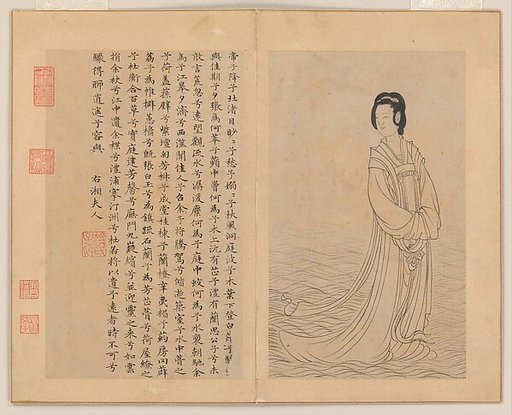 帝子降兮北渚目眇〻兮愁予嫋〻兮秋風洞庭波兮木葉下登白薠兮騁望
與佳期兮夕張鳥何萃兮蘋中罾何為兮木上沅有芷兮澧有蘭思公子兮未
敢言荒忽兮遠望觀流水兮潺湲麋何為兮庭中蛟何為兮水裔朝馳余
馬兮江皋夕濟兮西澨聞佳人兮召余將騰駕兮偕逝築室兮水中葺之
兮荷蓋蓀壁兮紫壇匊芳椒兮成堂桂棟兮蘭橑辛夷楣兮葯房罔薜
荔兮為帷擗蕙櫋兮既張白玉兮為鎮疏石蘭兮為芳芷葺兮荷屋繚之
兮杜衡合百草兮實庭建芳馨兮廡門九嶷繽兮並迎靈之來兮如雲
捐余袂兮江中遺余褋兮澧浦搴汀洲兮杜若將以遺兮遠者時不可兮
驟得聊逍遙兮容與
右湘夫人